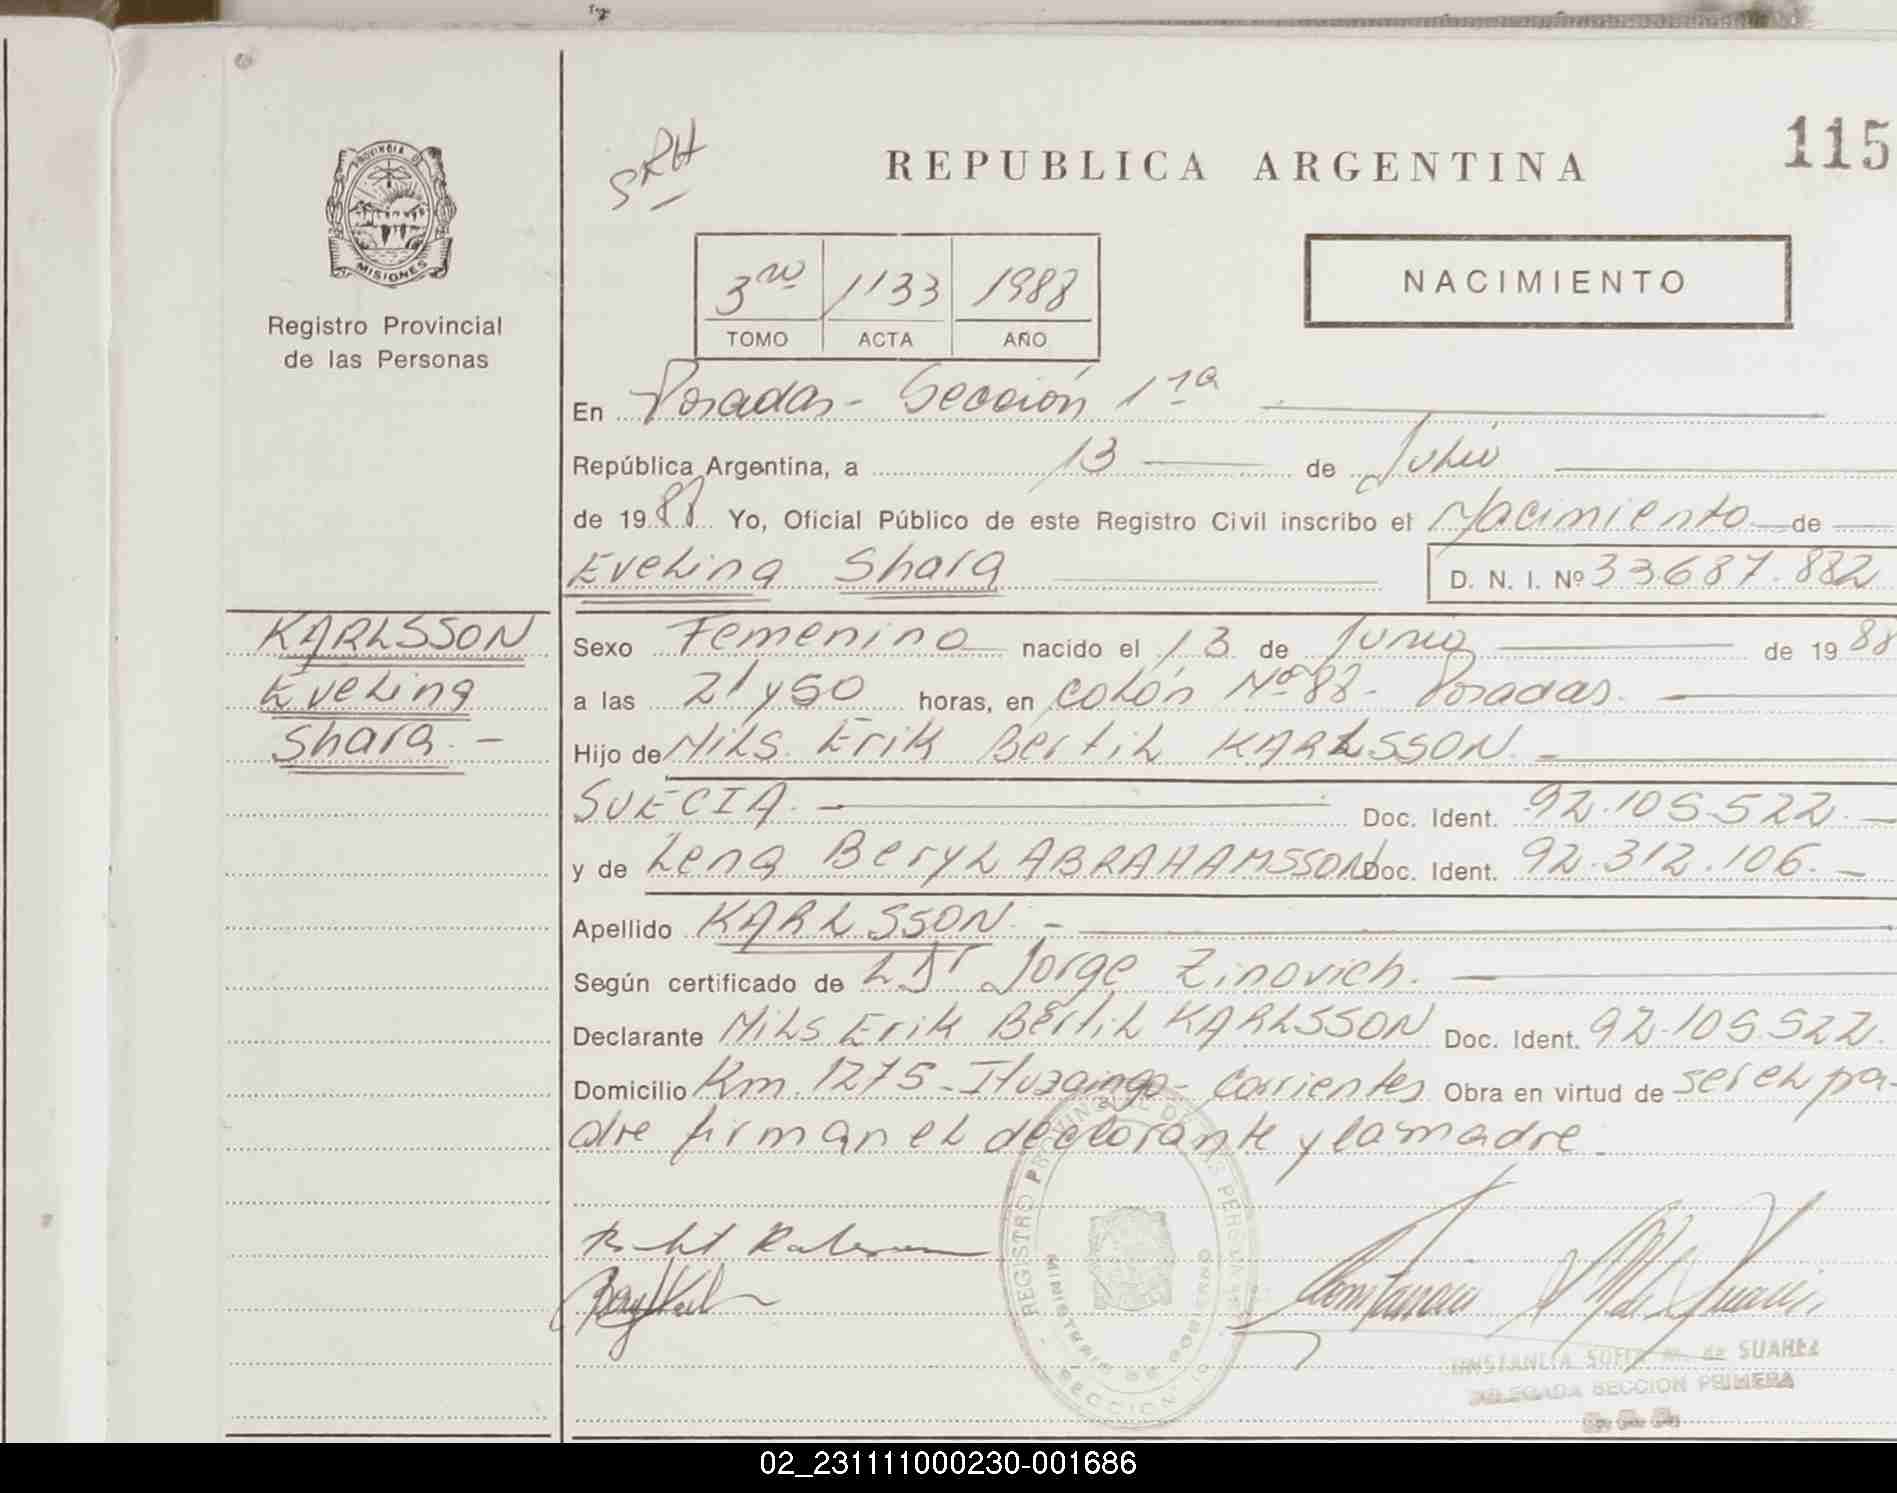 115
SRH
REPUBLICA ARGENTINA
PROVINCIA D
MISIONES
Registro Provincial
de las Personas
3ro 1133 1988
TOMO ACTA AÑO
NACIMIENTO
En Posadas - Sección 1ra
República Argentina, a 13 de Julio
de 1988 Yo, Oficial Público de este Registro Civil inscribo el Nacimiento de
Evelina Shara D. N. I. Nº 33.687.882
KARLSSON
Evelina
Shara. -
Sexo Femenino nacido el 13 de Junio de 1988
a las 21 y 50 horas, en Colón Nº 88 - Posadas.
Hijo de Nils Erik Bertil KARLSSON. -
SUECIA. - Doc. Ident. 92.105.522. -
y de Lena Beryl ABRAHAMSSON Doc. Ident. 92.312.106. -
Apellido KARLSSON. -
Según certificado de el Dr Jorge Zinovich. -
Declarante Nils Erik Bertil KARLSSON Doc. Ident. 92.105.522.
Domicilio Km. 1275 - Ituzaingo - Corrientes Obra en virtud de ser el pa-
dre firman el declarante y la madre.
REGISTRO PROVINCIAL DE LAS PERSONAS
MINISTERIO DE GOBIERNO
SECCION 1a
CONSTANCIA SOFIA M. de SUAREZ
DELEGADA SECCION PRIMERA
02_231111000230-001686